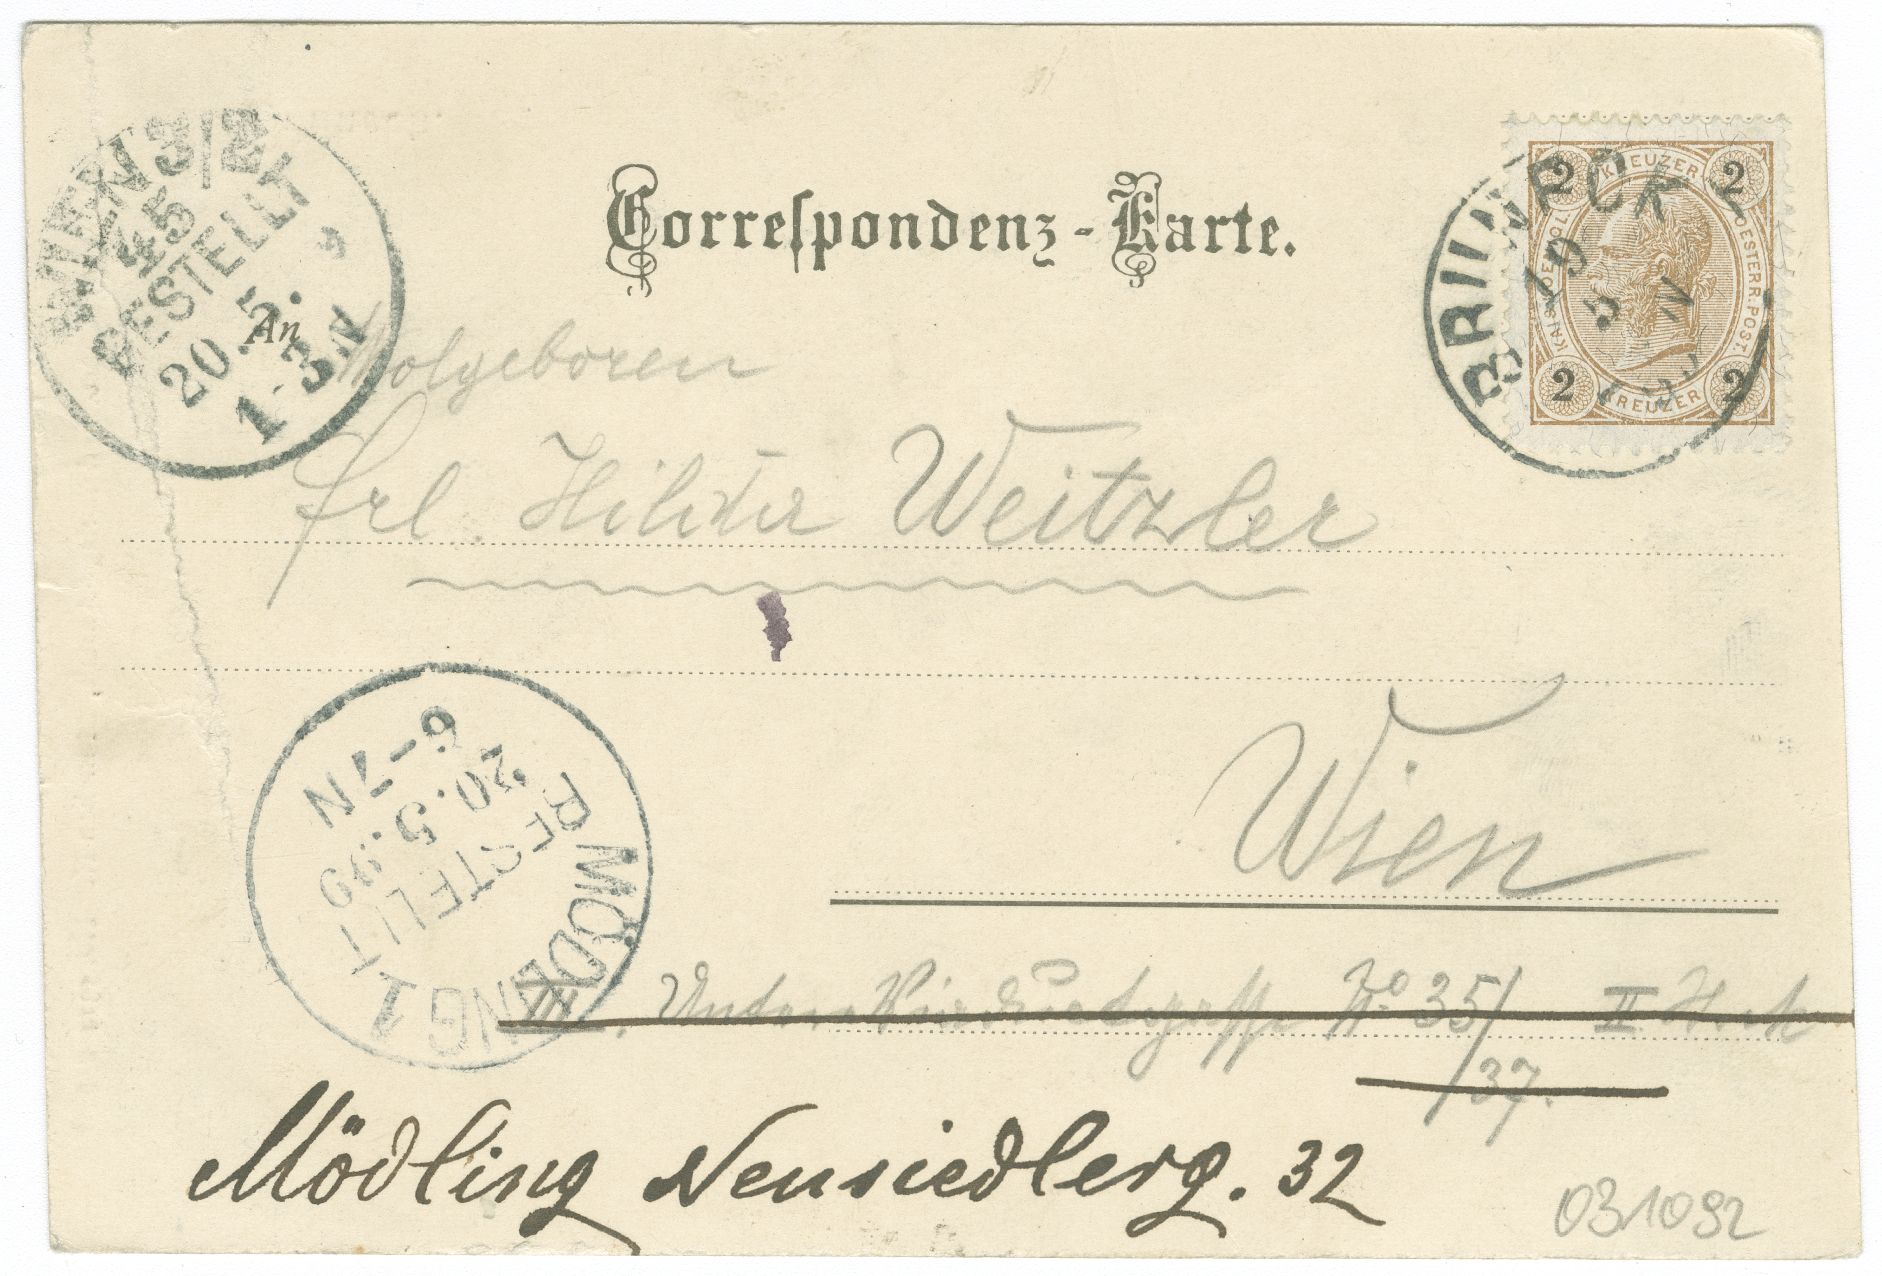 WIEN 3/2
45
BESTELLT
20.5.
1-3N
Correspondenz-Karte.
KREUZER
2 2
KAIS. KOENIGL. OESTERR. POST.
2 2
KREUZER
BRUNN
19
5
N
An
Wolgeboren
Frl. Hilda Weitzler
Wien
6-7N
20.5.99
BESTELLT
MÖDLING 1
III., Untere № 35/ II. Stock
/37.
Mödling Neusiedlerg. 32
031092